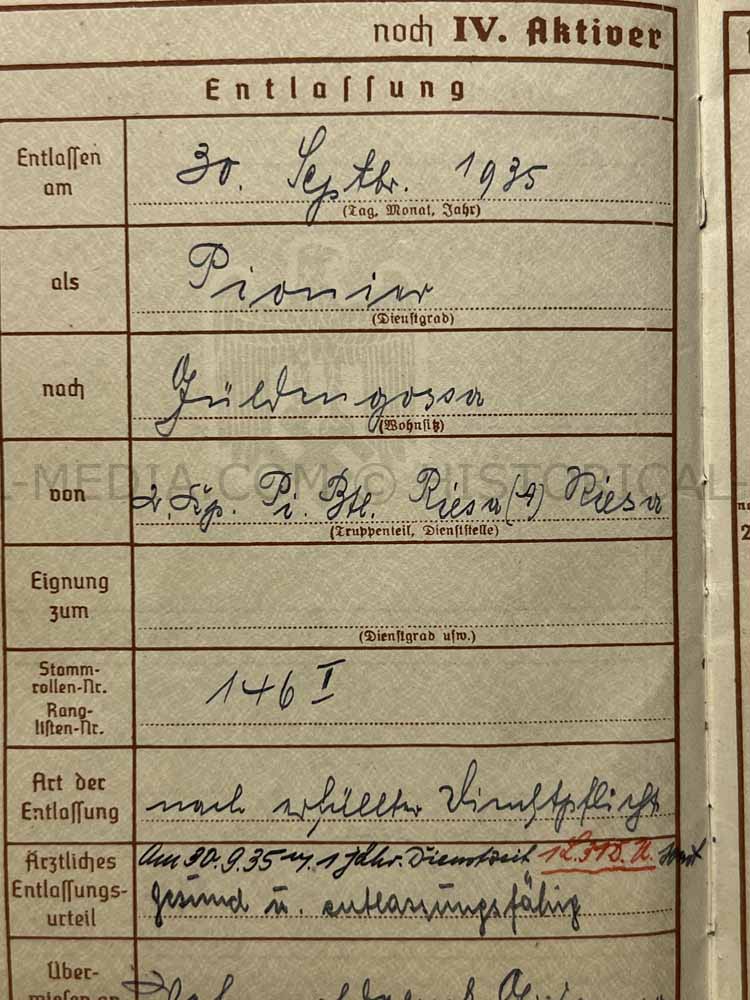 noch IV. Aktiver
Entlassung
Entlassen am
30. Septbr. 1935
(Tag, Monat, Jahr)
als
Pionier
(Dienstgrad)
nach
Güldengossa
(Wohnsitz)
von
2. Kp. Pi. Btl. Riesa (A) Riesa
(Truppenteil, Dienststelle)
L-MEDIA.COM © HISTORICAL-
Eignung zum
(Dienstgrad usw.)
Stamm-
rollen-Nr.
Rang-
listen-Nr.
146 I
Art der
Entlassung
nach erfüllter Dienstpflicht
Ärztliches
Entlassungs-
urteil
Am 30.9.35 n. 1 jähr. Dienstzeit
gesund u. entlassungsfähig
Über-
wiesen an